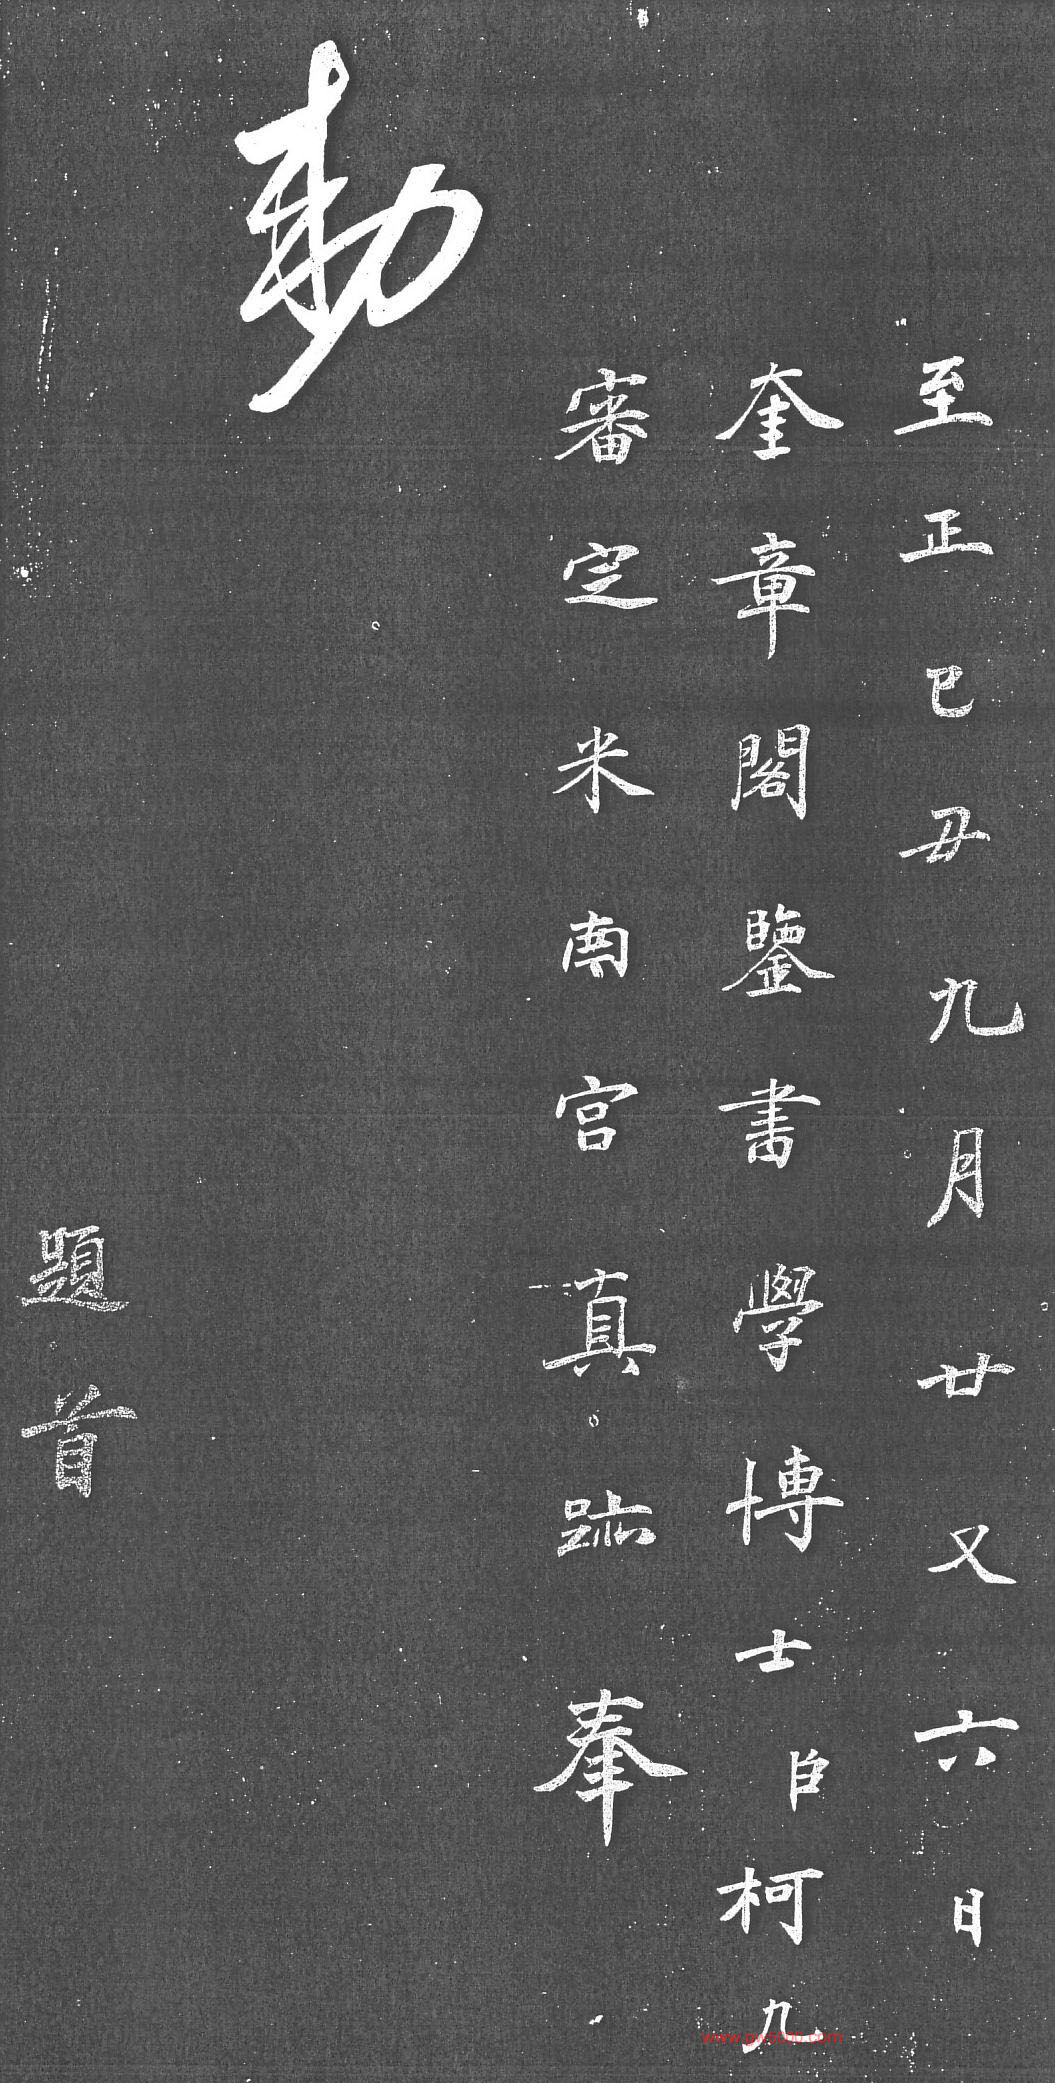 至正己丑九月廿又六日
奎章閣鑒書學博士臣柯九
審定米南宫真跡奉
勅
題首
www.gw5000.com